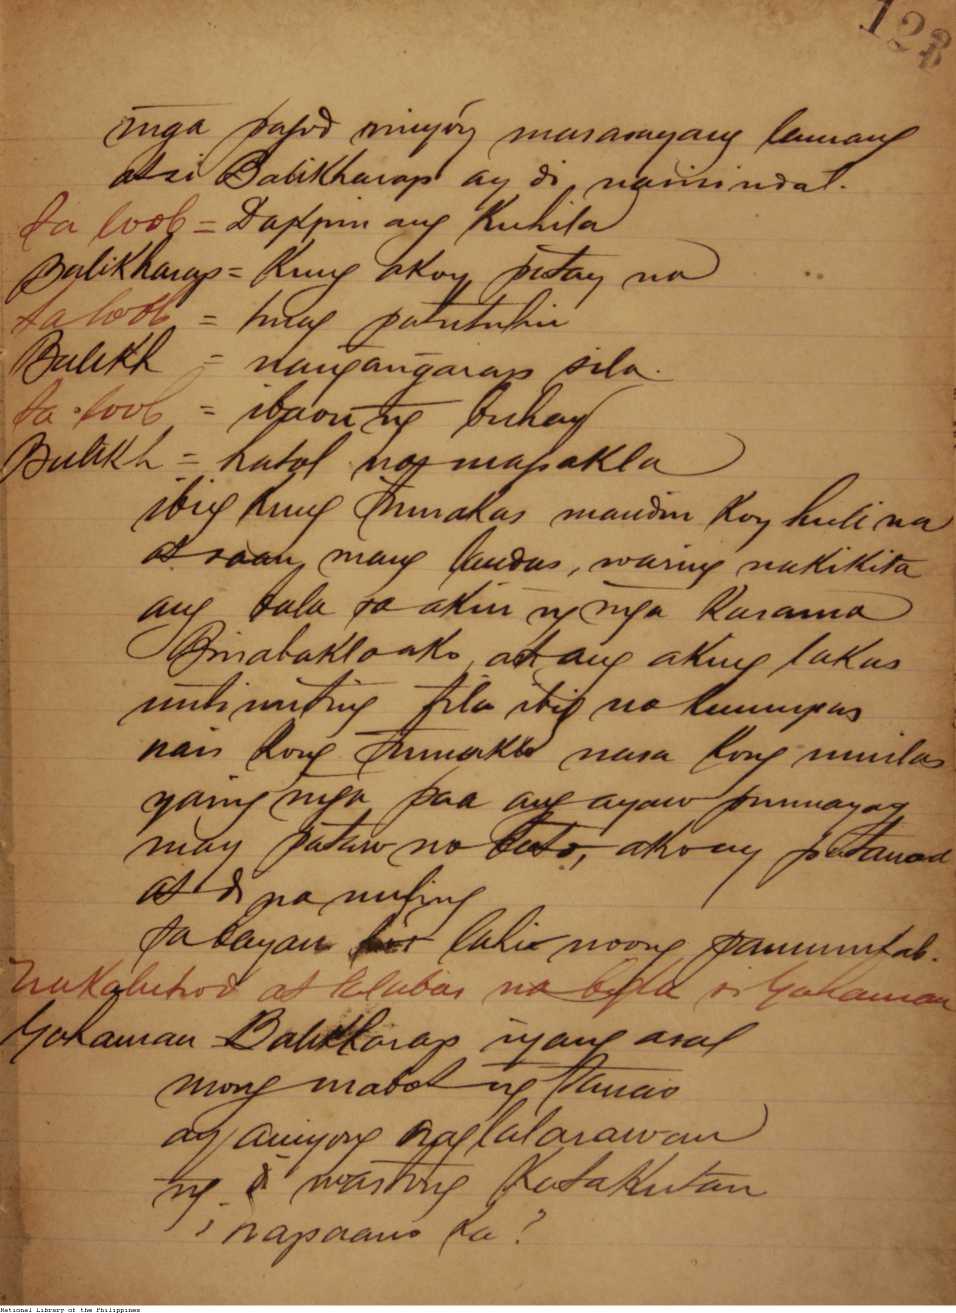 123
mga pagod ninyóy masasayang lamang
at si Balikharap ay di namimdal.
Sa loob = Dakpin ang Kuhila
Balikharap = Kung akoy patay na
Sa loob = huag patutuluin
Balikh = nangangarap sila.
Sa loob = ibaon ng buhay
Balikh = hatol na mapakla
ibig kung tumakas mandin koy huli na
at saan mang landas, waring nakikita
ang bala sa akin ng mga kasama
Binabaklaako, at ang aking lakas
unti unting tila ibig na kumupas
nais kong tumakbo nasa kong umilas
yaring mga paa ang ayaw pumayag
may pataw na bato, akoay patanod
at di na muling
sa bayan lahi noong
Nakalulusod at lalabas na bigla si Yohaman
Yohaman = Balikharap iyang asal
mong mabol ng
ay aniyong naglalarawan
ng di wasting Katakutan
¿ napaano ka?
National Library of the Philippines